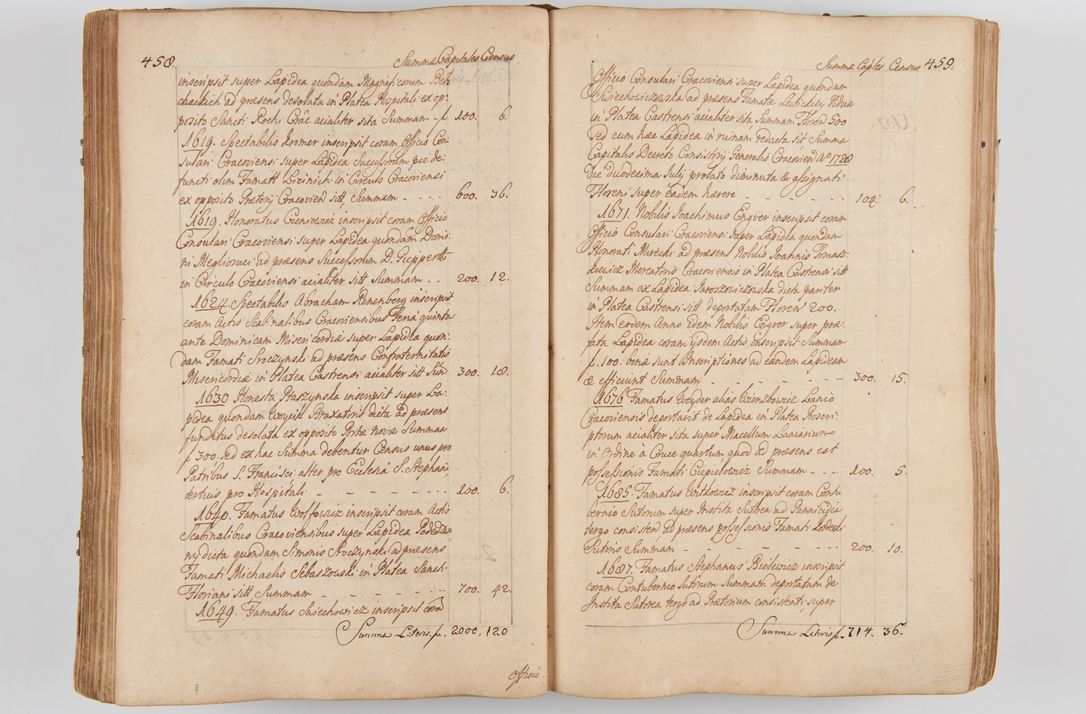 458. Summæ Capitales Census
inscripsit super Lapidea quondam Magnificorum
ad præsens desolata in Platea Hospitali ex op-
posito Sancti Rochi Crac: acialiter sita Summam - f. 100. 6.
1619. Spectabilis inscripsit coram Officio Con-
sulari Cracoviensi super Lapidea Successorum præ de-
functi olim Famati in Circulo Cracoviensi
ex opposito Prætorij Cracovien: sitt Summam 600. 36.
1619. Honoratus inscripsit coram Officio
Consulari Cracoviensi super Lapidea quondam Domi-
ni ad præsens Successorum D.
in Circulo Cracoviensi acialiter sitt Summam 200. 12.
1624 Spectabilis Abraham inscripsit
coram Actis Scabinalibus Cracoviensibus Feria quinta
ante Dominicam Misericordiæ super Lapidea quon-
dam Famati Sroczynski ad præsens Confraternitatis
Misericordiæ in Platea Castrensi acialiter sitt Sum 300. 18.
1630 Honesta inscripsit super La-
pidea quondam Woycik dicta ad præsens
funditus desolata ex opposito Portæ novæ Summam
f. 300. Sed ex hac Summa debentur Census unus pro
Patribus S. Francisci alter pro Ecclesia S. Stephani,
tertius pro Hospitali 100. 6.
1640. Famatus inscripsit coram Actis
Scabinalibus Cracoviensibus super Lapidea
dicta quondam Simonis Sroczynski ad præsens
Famati Michaelis in Platea Sancti
Floriani sitt Summam 700. 42
1649. Famatus Swiechowicz inscripsit cora
Summa Lateris f. 2000, 120
Officio
Summæ Caples Census 459.
Officio Consulari Cracoviensi super Lapidea quondam
Swiechowiczowska ad præsens Famata Vidua
in Platea Castrensi acialiter sita Summam Floren 500
Sed cum hæc Lapidea in ruinam redacta sit Summa
Capitalis Decreto Consistorij Generalis Cracovien: Aº
die duodecima Julij prolato diminuta & assignati
Floreni super eadem hærere 104. 6.
1671. Nobilis Joachimus Engver inscripsit coram
Officio Consulari Cracoviensi super Lapidea quondam
Honorati ad præsens Nobilis Joannis Tomasz-
kiewicz Mercatoris Cracoviensis in Platea Castrensi sitt
Summam ex Lapidea dicta pariter
in Platea Castrensi sitt deportatam Floren 200.
Item eodem Anno idem Nobilis Engver super præ-
fata Lapidea coram ijsdem Actis inscripsit Summam
f. 100. binæ sunt Inscriptiones ad eandem Lapideam
& efficiunt Summam 300. 15.
1676 Famatus Woyder alias Lanio
Cracoviensis deportavit de Lapidea in Platea
acialiter sita super Macellum Laniarium
in Ordine à Cruce quartum quod ad præsens est
possessionis Famati Summam 100. 5.
1685. Famatus Witkowicz inscripsit coram Contu-
bernio Sutorum super Instita Sutrea ad Pannicidia
tergo consisten: ad præsens possessionis Famati
Sutoris Summam 200. 10.
1687. Famatus Stephanus Bielewicz inscripsit
coram Contubernio Sutorum Summam deportatam de
Instita Sutorea tergo ad Prætorium consistenti, super
Summa Lateris f. 714. 36.